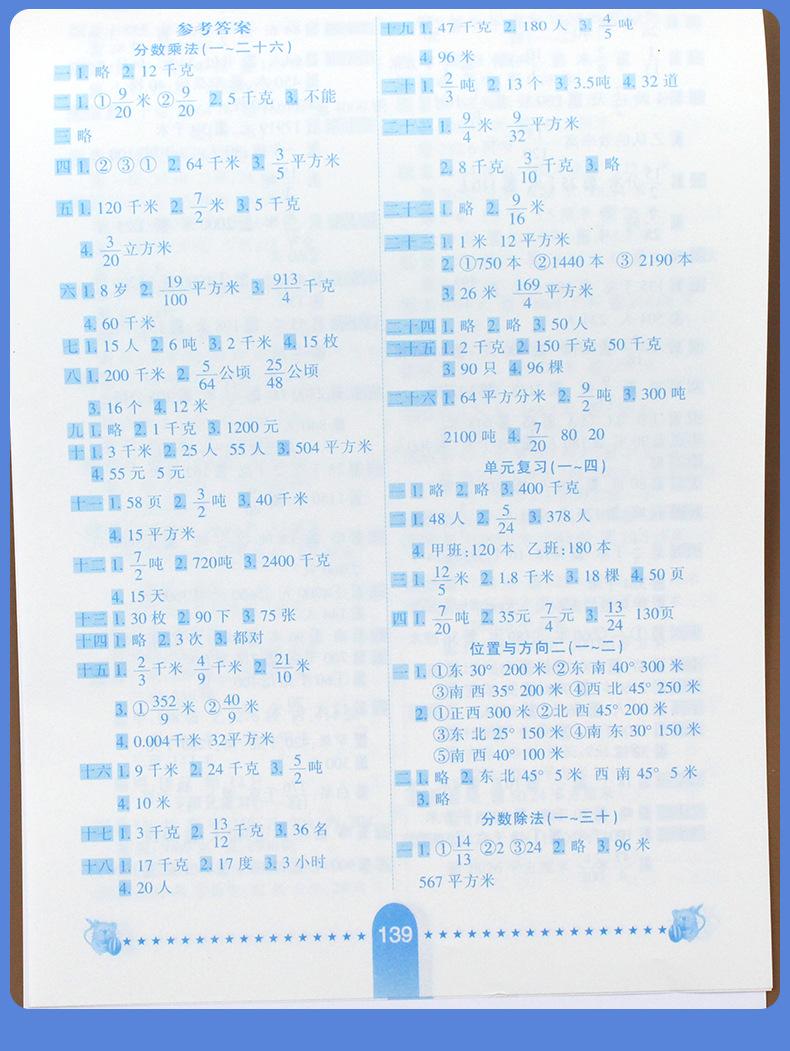 参考答案
分数乘法(一~二十六)
一 1. 略 2. 12 千克
二 1. ①9/20 米 ②9/20 2. 5 千克 3. 不能
三 略
四 1. ② ③ ① 2. 64 千米 3. 3/5 平方米
五 1. 120 千米 2. 7/2 米 3. 5 千克
4. 3/20 立方米
六 1. 8 岁 2. 19/100 平方米 3. 913/4 千克
4. 60 千米
七 1. 15 人 2. 6 吨 3. 2 千米 4. 15 枚
八 1. 200 千米 2. 5/64 公顷 25/48 公顷
3. 16 个 4. 12 米
九 1. 略 2. 1 千克 3. 1200 元
十 1. 3 千米 2. 25 人 55 人 3. 504 平方米
4. 55 元 5 元
十一 1. 58 页 2. 3/2 吨 3. 40 千米
4. 15 平方米
十二 1. 7/2 吨 2. 720吨 3. 2400 千克
4. 15 天
十三 1. 30 枚 2. 90 下 3. 75 张
十四 1. 略 2. 3 次 3. 都对
十五 1. 2/3 千米 4/9 千米 2. 21/10 米
3. ①352/9 米 ②40/9 米
4. 0.004千米 32平方米
十六 1. 9 千米 2. 24 千克 3. 5/2 吨
4. 10 米
十七 1. 3 千克 2. 13/12 千克 3. 36 名
十八 1. 17 千克 2. 17 度 3. 3 小时
4. 20 人
十九 1. 47 千克 2. 180 人 3. 4/5 吨
4. 96 米
二十 1. 2/3 吨 2. 13 个 3. 3.5吨 4. 32 道
二十一 1. 9/4 米 9/32 平方米
2. 8 千克 3/10 千克 3. 略
二十二 1. 略 2. 9/16 米
二十三 1. 1 米 12 平方米
2. ①750 本 ②1440 本 ③ 2190 本
3. 26 米 169/4 平方米
二十四 1. 略 2. 略 3. 50 人
二十五 1. 2 千克 2. 150 千克 50 千克
3. 90 只 4. 96 棵
二十六 1. 64 平方分米 2. 9/2 吨 3. 300 吨
2100 吨 4. 7/20 80 20
单元复习(一~四)
一 1. 略 2. 略 3. 400 千克
二 1. 48 人 2. 5/24 3. 378 人
4. 甲班:120 本 乙班:180 本
三 1. 12/5 米 2. 1.8 千米 3. 18 棵 4. 50 页
四 1. 7/20 吨 2. 35元 7/4 元 3. 13/24 130页
位置与方向二(一~二)
一 1. ①东 30° 200 米 ②东 南 40° 300 米
③南 西 35° 200 米 ④西 北 45° 250 米
2. ①正西 300 米 ②北 西 45° 200 米
③东 北 25° 150 米 ④南 东 30° 150 米
⑤南 西 40° 100 米
二 1. 略 2. 东 北 45° 5 米 西 南 45° 5 米
3. 略
分数除法(一~三十)
一 1. ①14/13 ②2 ③24 2. 略 3. 96 米
567 平方米
139